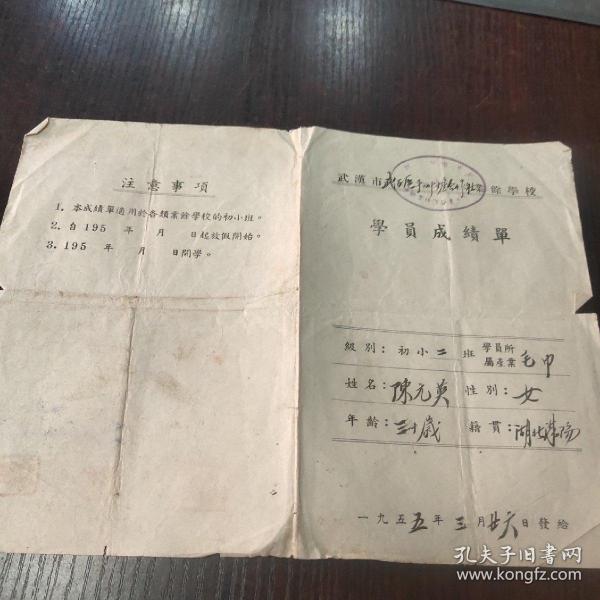 注意事項
1. 本成績單適用於各類業餘學校的初小班。
2. 自195 年 月 日起放假開始。
3. 195 年 月 日開學。
武漢市 業餘學校
學員成績單
級別：初小二班 學員所屬產業 毛巾
姓名：陳元英 性別：女
年齡：三十歲 籍貫：湖北漢陽
一九五五年三月廿六日發給
孔夫子旧书网
www.kongfz.com